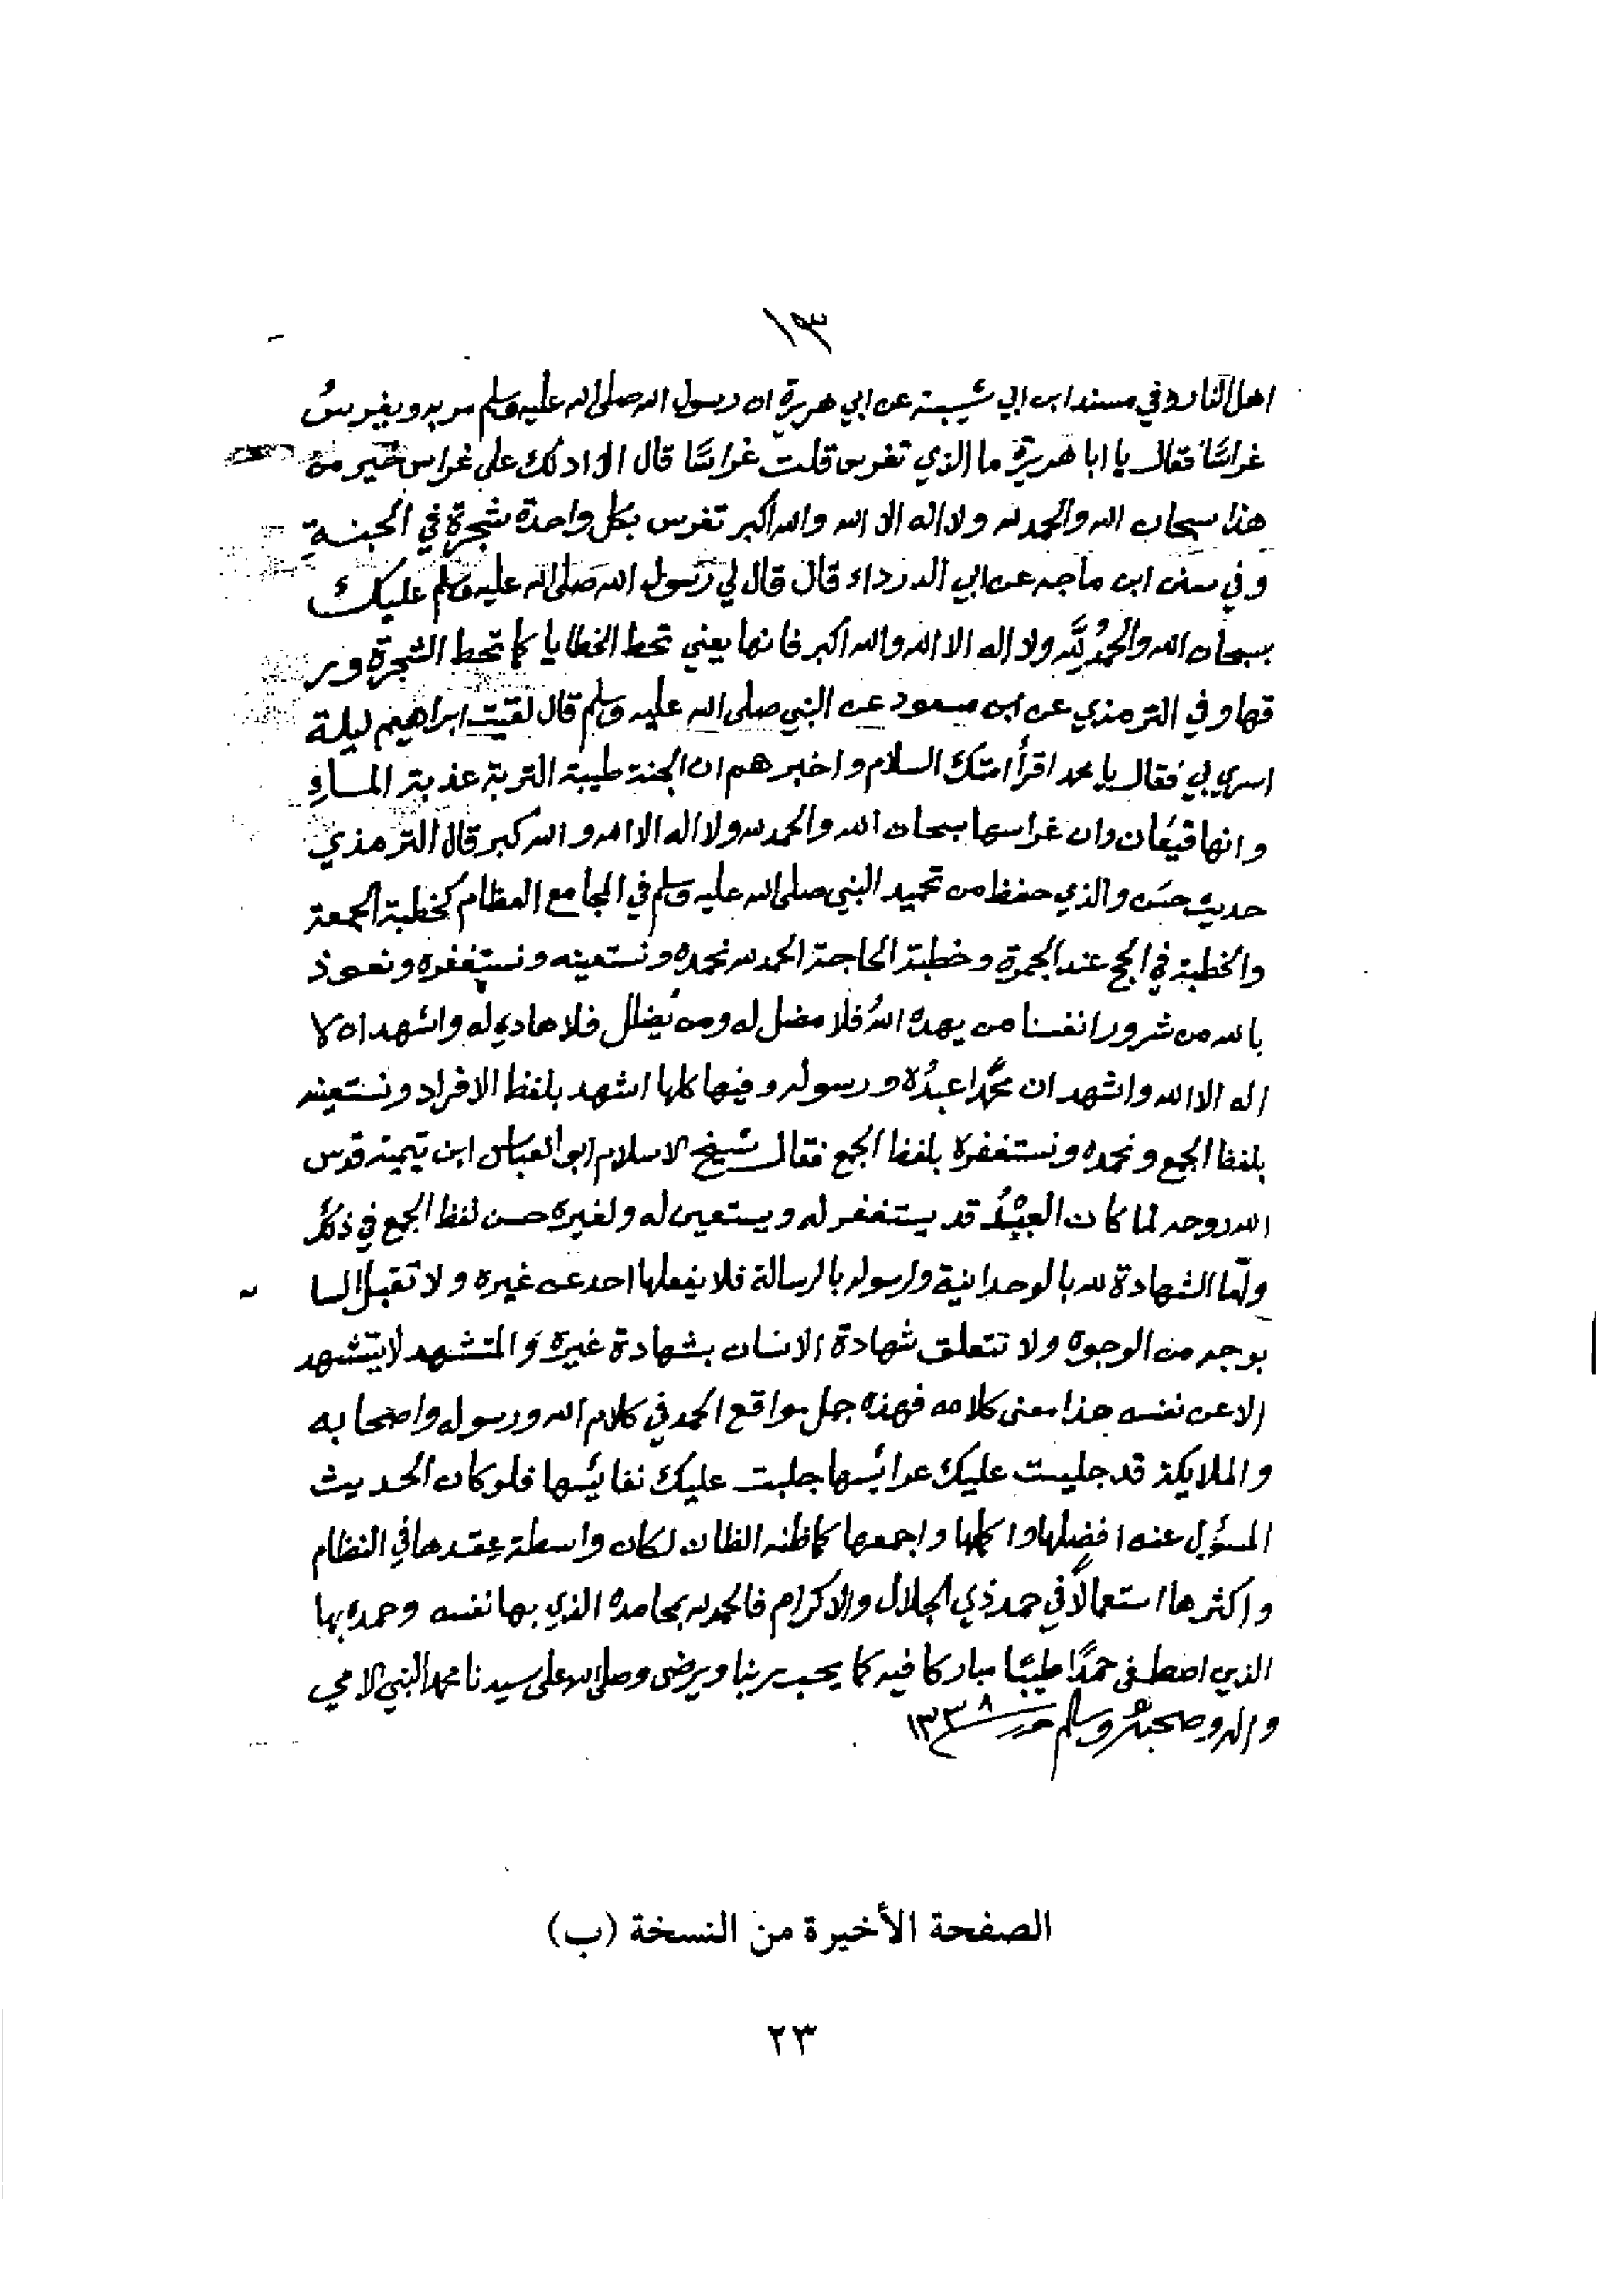 ١٣
اهل النار وفي مسند ابن ابي شيبة عن ابي هريرة ان رسول الله صلى الله عليه وسلم مر به ويغرسُ
غراسًا فقال يا ابا هريرة ما الذي تغرس قلت غراسًا قال الا ادلك على غراس خير من
هذا سبحان الله والحمد لله ولا اله الا الله والله أكبر تغرس بكل واحدة شجرة في الجنةِ
وفي سنن ابن ماجه عن ابي الدرداء قال قال لي رَسول الله صَلى الله عليه وسلم عليك
بسبحان الله والحمدُ لِلّهِ ولا اله الا الله والله أكبر فانها يعني تحط الخطايا كما تحط الشجرة ور
قها وفي الترمذي عن ابن مسعود عن النبي صلى الله عليه وسلم قال لقيت ابراهيم ليلة
اسري بي فقال يا محمد اقرأ امتك السلام واخبرهم ان الجنة طيبة التربة عذبة المَاءِ
وانها قيعَان وان غراسها سبحان الله والحمد لله ولا اله الا الله والله كبر قال الترمذي
حديث حسَن والذي حفظ من تحميد النبي صلى الله عليه وسلم في المجامع العظام كخطبة الجمعة
والخطبة في الحج عند الجمرة وخطبة الحاجة الحمد لله نحمده ونستعينه ونستغفره ونعوذ
بالله من شرور انفسنا من يهده اللهُ فلا مضل له ومن يُضلل فلا هادي له واشهد ان لا
اله الا الله واشهد ان محمّدًا عبدُه ورسوله وفيها كلها اشهد بلفظ الافراد ونستعينه
بلفظ الجمع ونحمده ونستغفره بلفظ الجمع فقال شيخ الاسلام ابو العباس ابن تيمية قدس
الله روحه لما كان العبْدُ قد يستغفر له ويستعين له ولغيره حسن لفظ الجمع في ذلك
ولمّا الشهادة لله بالوحدانية ولرسوله بالرسالة فلا يفعلها احد عن غيره ولا تقبل النيا
بوجه من الوجوه ولا تتعلق شهادة الانسان بشهادة غيره وَالمتشهد لا يتشهد
الا عن نفسه هذا معنى كلامه فهذه جل مواقع الحمد في كلام الله ورسوله واصحابه
والملايكة قد جليت عليك عرائسها جلبت عليك نفائسها فلو كان الحديث
المسؤل عنه افضلها واكملها واجمعها كما ظنه الظان لكان واسطة عقدها في النظام
واكثرها استعمالاً في حمد ذي الجلال والاكرام فالحمد لله بمحامده الذي بها نفسه وحمده بها
الذين اصطفى حمدًا طيبًا مباركا فيه كما يحب ربنا ويرضى وصلى الله على سيدنا محمد النبي الامي
واله وصحبه وسلم ١٣٣٨
الصفحة الأخيرة من النسخة (ب)
٢٣